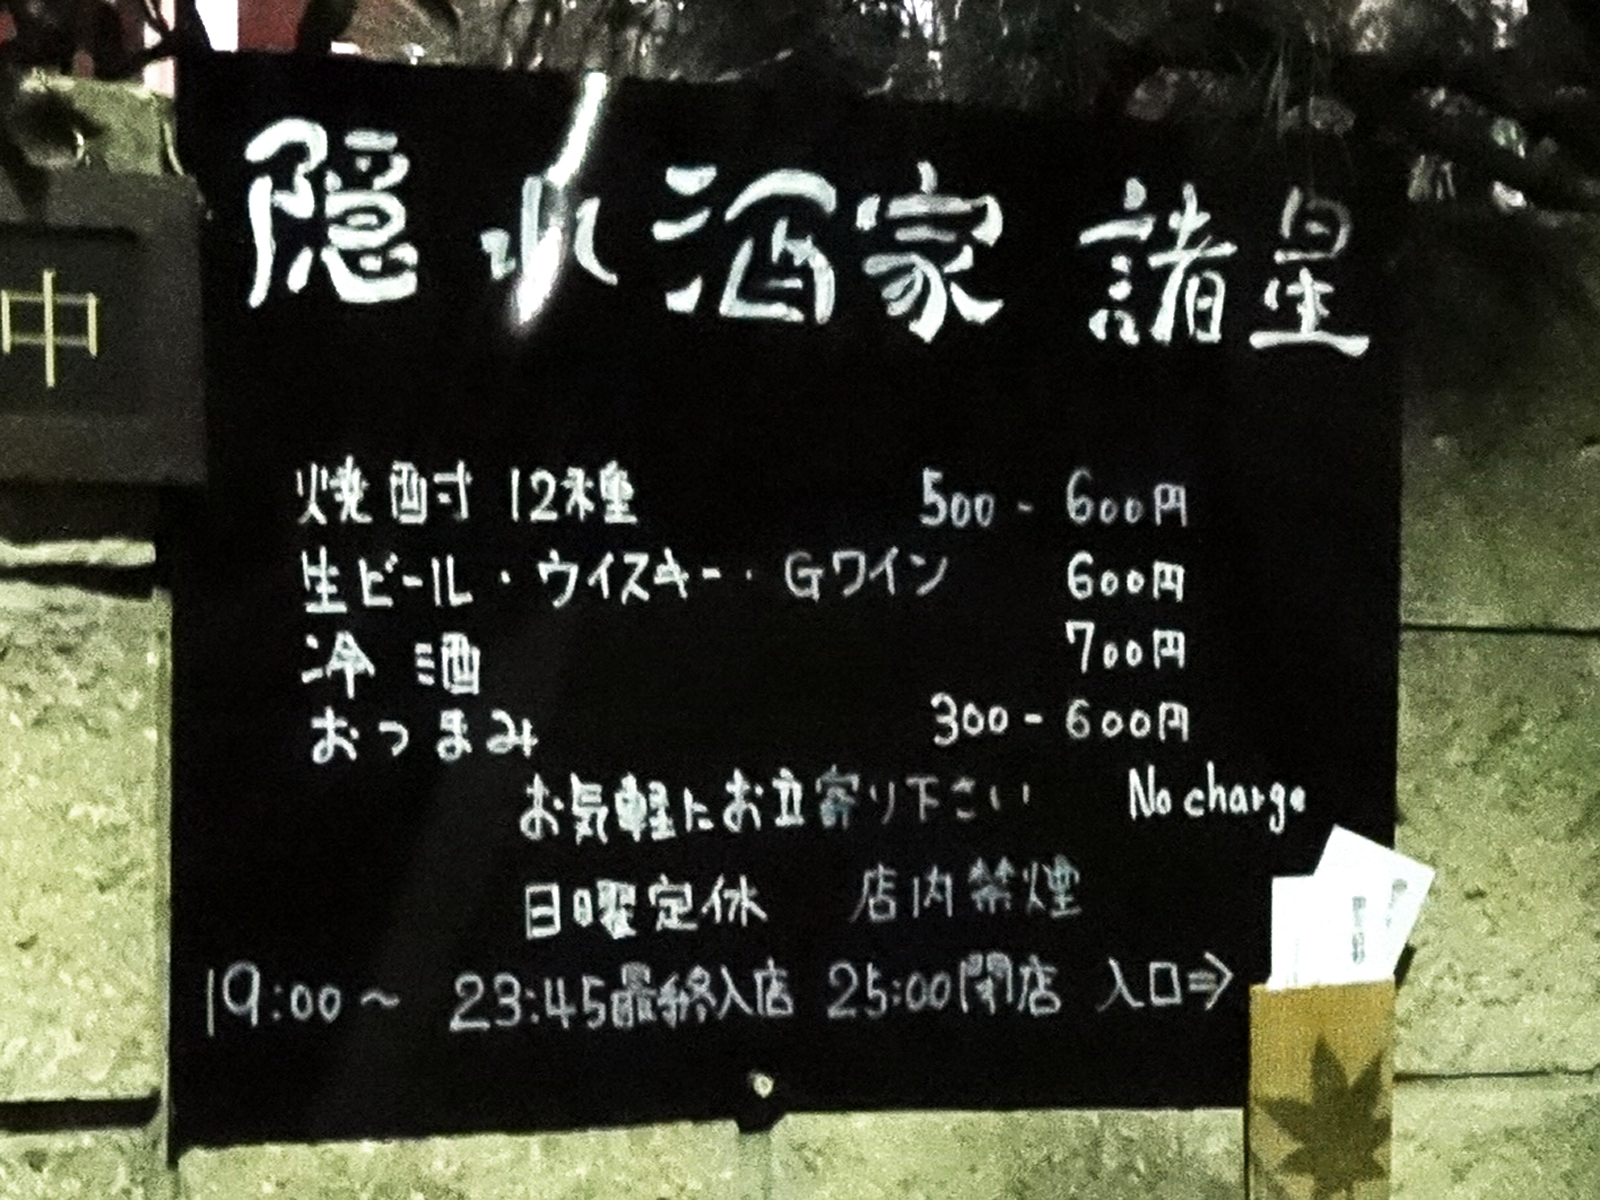 隠れ酒家 諸星
中
焼酎 12種 500 - 600円
生ビール・ウイスキー・Gワイン 600円
冷酒 700円
おつまみ 300 - 600円
お気軽にお立寄り下さい No charge
日曜定休 店内禁煙
19:00～ 23:45最終入店 25:00閉店 入口⇒